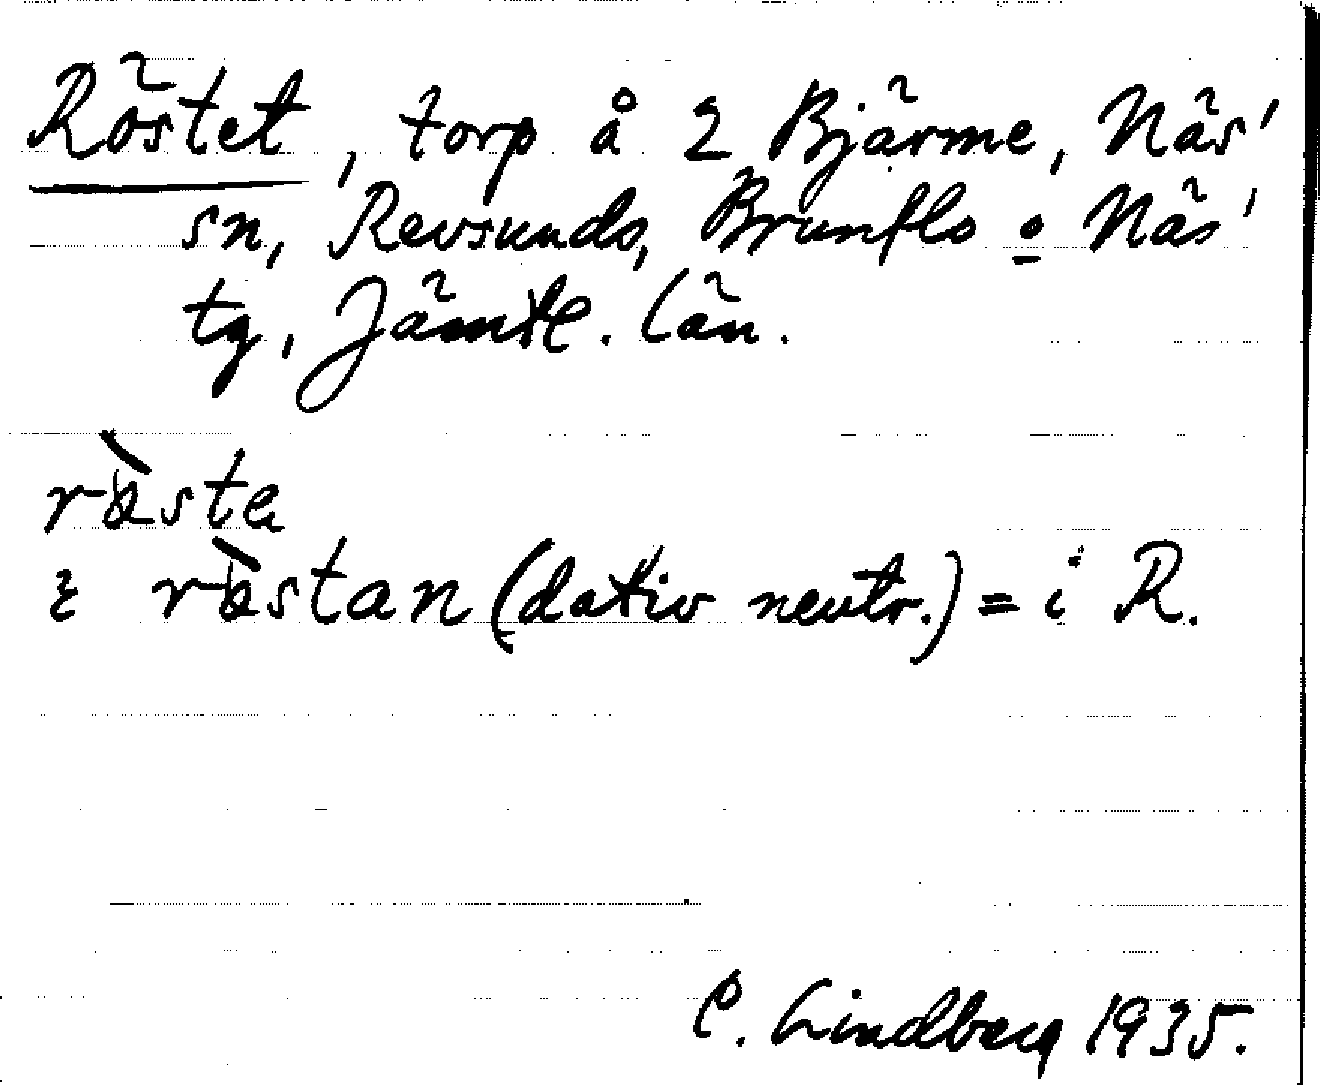 Röstet, torp å 2 Bjärme, Näs'
sn, Revsunds, Brunflo o Näs'
tg, Jämtl. län.
rὰste
i rὰstan (dativ neutr.) = i R.
C. Lindberg 1935.